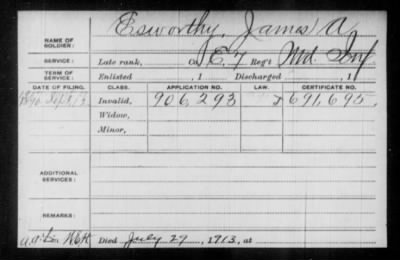 NAME OF SOLDIER: Esworthy, James A
SERVICE: Late rank, Co. E, 7 Reg't Md. Inf
TERM OF SERVICE: Enlisted , 1 Discharged , 1
DATE OF FILING. CLASS. APPLICATION NO. LAW. CERTIFICATE NO.
1890 Sept. 13 Invalid, 906,293 691,695.
Widow,
Minor,
ADDITIONAL SERVICES:
REMARKS:
Died July 29, 1913, at